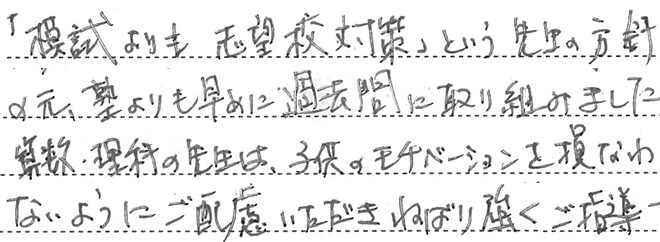 「模試よりも 志望校対策」という先生の方針
の元、塾よりも早めに過去問に取り組みました
算数・理科の先生は、子供のモチベーションを損なわ
ないようにご配慮いただきねばり強くご指導